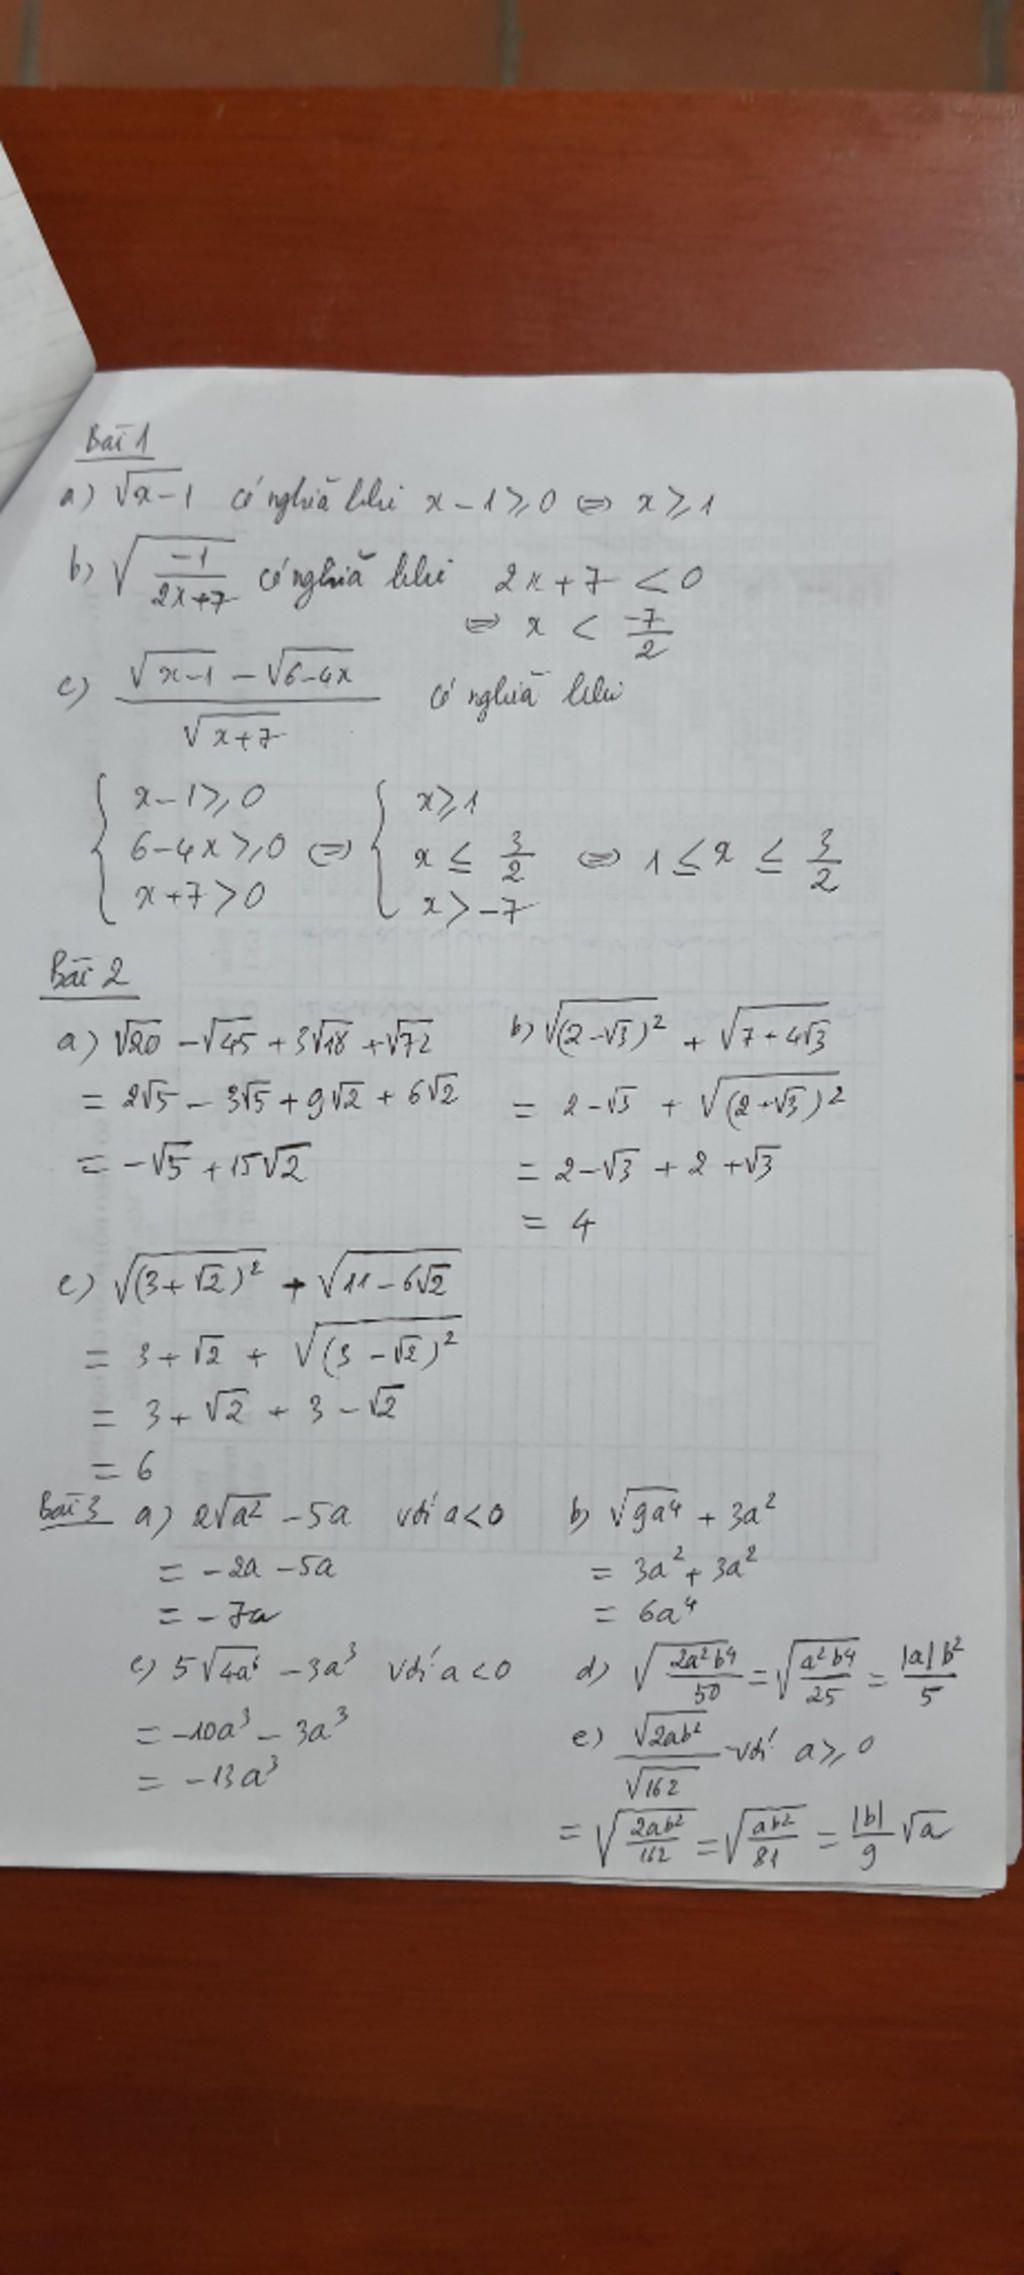 Bài 1
a) √(x-1) có nghĩa khi x - 1 ≥ 0 ⇔ x ≥ 1
b) √(-1/(2x+7)) có nghĩa khi 2x + 7 < 0
⇔ x < -7/2
c) (√(x-1) - √(6-4x))/√(x+7) có nghĩa khi
{ x-1 ≥ 0 ; 6-4x ≥ 0 ; x+7 > 0 ⇔ { x ≥ 1 ; x ≤ 3/2 ; x > -7 ⇔ 1 ≤ x ≤ 3/2
Bài 2
a) √20 - √45 + 3√18 + √72
= 2√5 - 3√5 + 9√2 + 6√2
= -√5 + 15√2
b) √((2-√3)²) + √(7+4√3)
= 2-√3 + √((2+√3)²)
= 2-√3 + 2+√3
= 4
c) √((3+√2)²) + √(11-6√2)
= 3+√2 + √((3-√2)²)
= 3+√2 + 3-√2
= 6
Bài 3 a) 2√a² - 5a với a<0
= -2a - 5a
= -7a
b) √9a⁴ + 3a²
= 3a² + 3a²
= 6a⁴
c) 5√4a⁶ - 3a³ với a<0
= -10a³ - 3a³
= -13a³
d) √(2a²b⁴/50) = √(a²b⁴/25) = |a|b²/5
e) √2ab²/√162 với a ≥ 0
= √(2ab²/162) = √(ab²/81) = |b|/9 √a